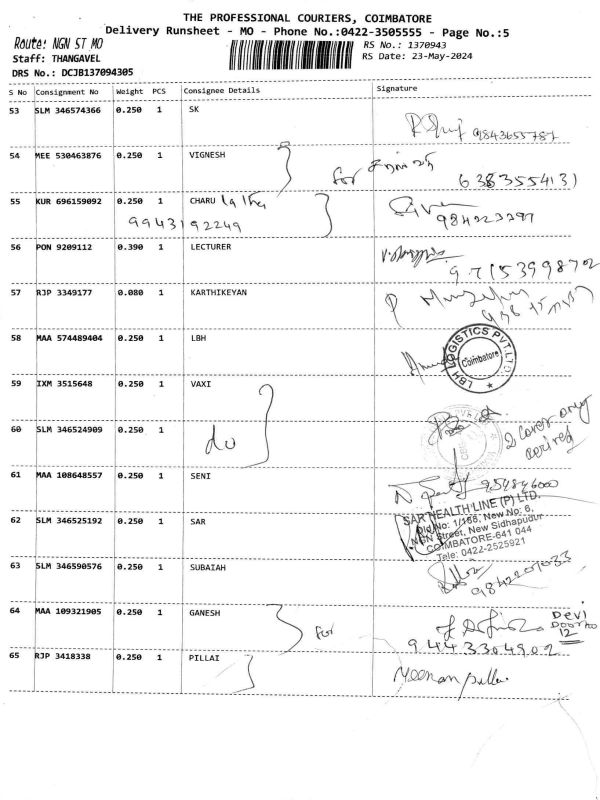 THE PROFESSIONAL COURIERS, COIMBATORE
Delivery Runsheet - MO - Phone No.:0422-3505555 - Page No.:5
Route: NGN ST MO
RS No.: 1370943
Staff: THANGAVEL
RS Date: 23-May-2024
DRS No.: DCJB137094305
S No Consignment No Weight PCS Consignee Details Signature
53 SLM 346574366 0.250 1 SK
9843655787
54 MEE 530463876 0.250 1 VIGNESH
for
6383554131
55 KUR 696159092 0.250 1 CHARU latha
9943192249
56 PON 9209112 0.390 1 LECTURER
97153998702
57 RJP 3349177 0.080 1 KARTHIKEYAN
58 MAA 574489404 0.250 1 LBH
LBH LOGISTICS PVT.LTD.
Coimbatore
59 IXM 3515648 0.250 1 VAXI
60 SLM 346524909 0.250 1
do
2 cover only
61 MAA 108648557 0.250 1 SENI
62 SLM 346525192 0.250 1 SAR
SAR HEALTH LINE (P) LTD.
Old No: 1/166, New No: 6,
NGN Street, New Sidhapudur
COIMBATORE-641 044
Tele: 0422-2525921
63 SLM 346590576 0.250 1 SUBAIAH
9842207033
64 MAA 109321905 0.250 1 GANESH
for
Devi
12
9443304902
65 RJP 3418338 0.250 1 PILLAI
Meenan pillai